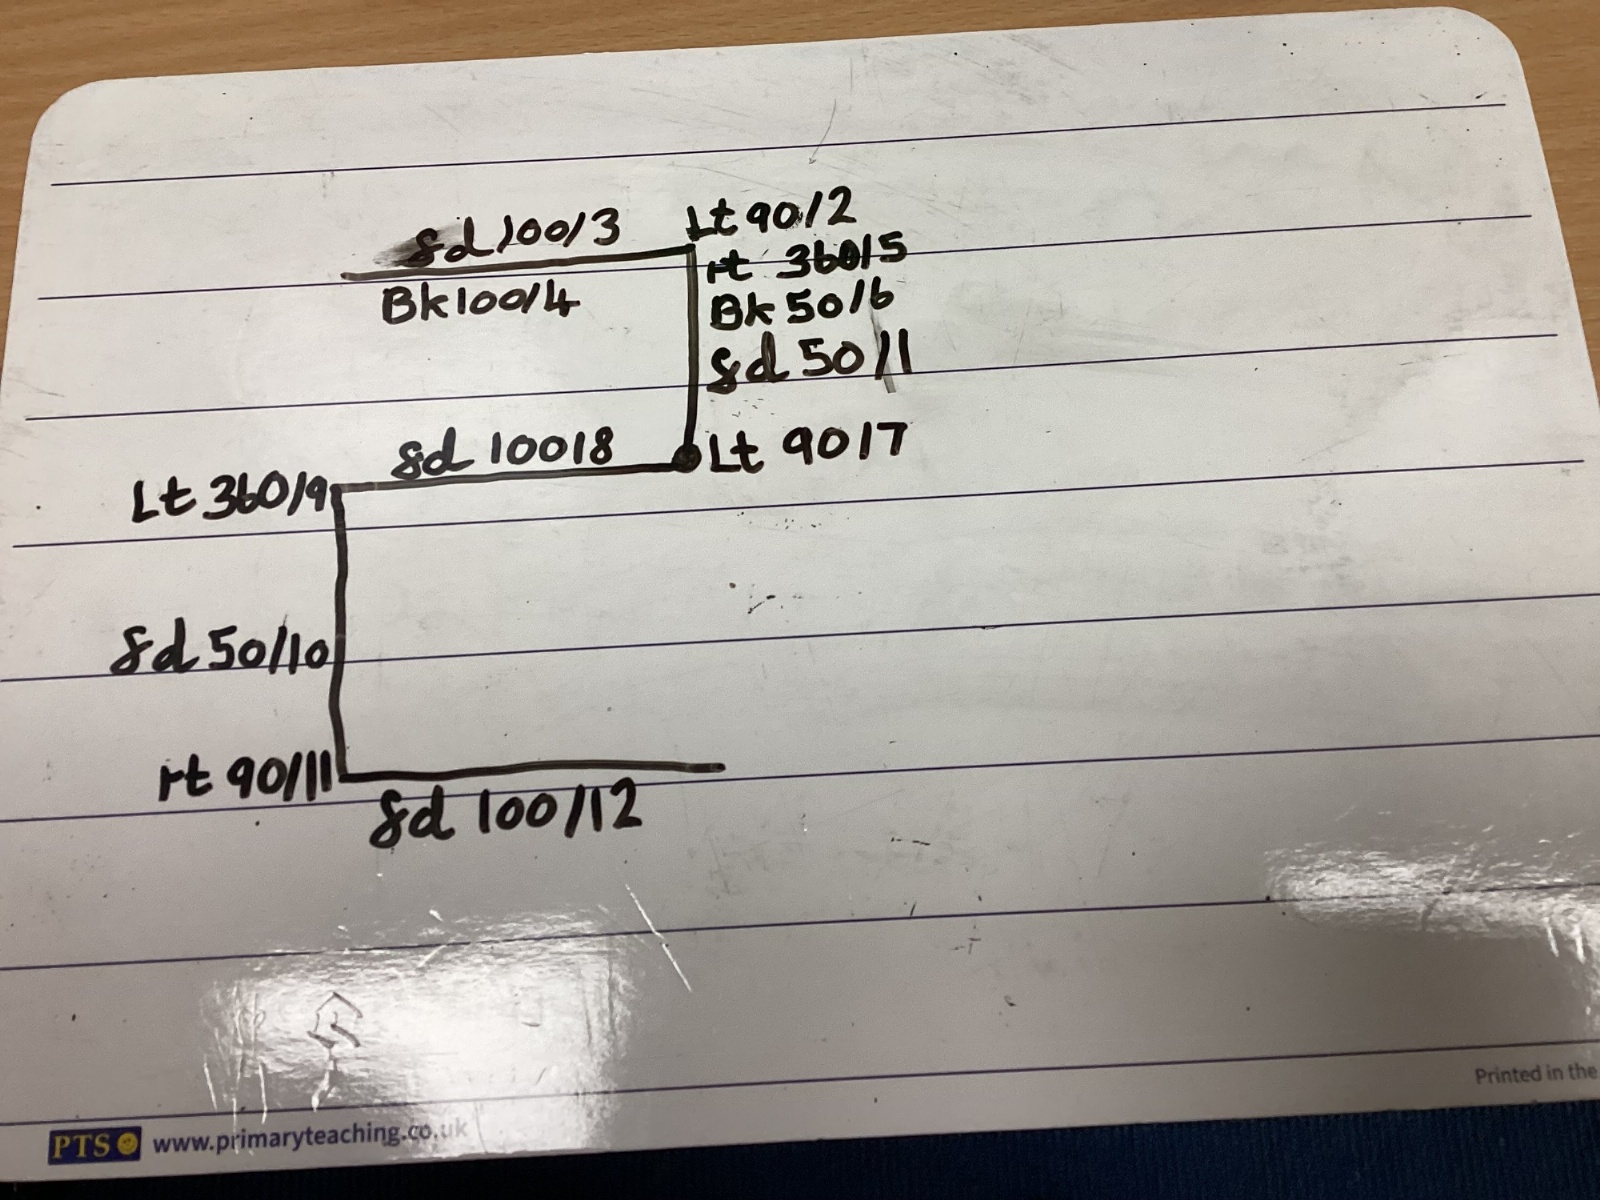 fd 100/3
Lt 90/2
rt 360/5
Bk 100/4
Bk 50/6
fd 50/1
fd 100/8
Lt 90/7
Lt 360/9
fd 50/10
rt 90/11
fd 100/12
PTS www.primaryteaching.co.uk
Printed in the